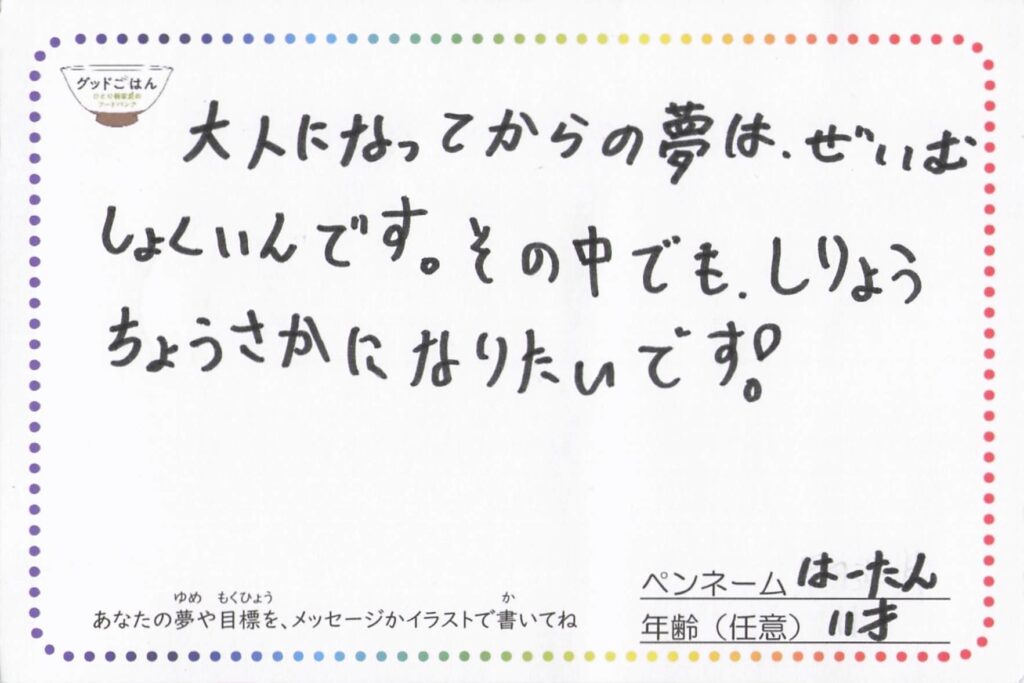 グッドごはん
ひとり親家庭の
フードバンク
大人になってからの夢は、ぜいむ
しょくいんです。その中でも、しりょう
ちょうさかになりたいです!
ゆめ もくひょう か
あなたの夢や目標を、メッセージかイラストで書いてね
ペンネーム はーたん
年齢（任意） 11才